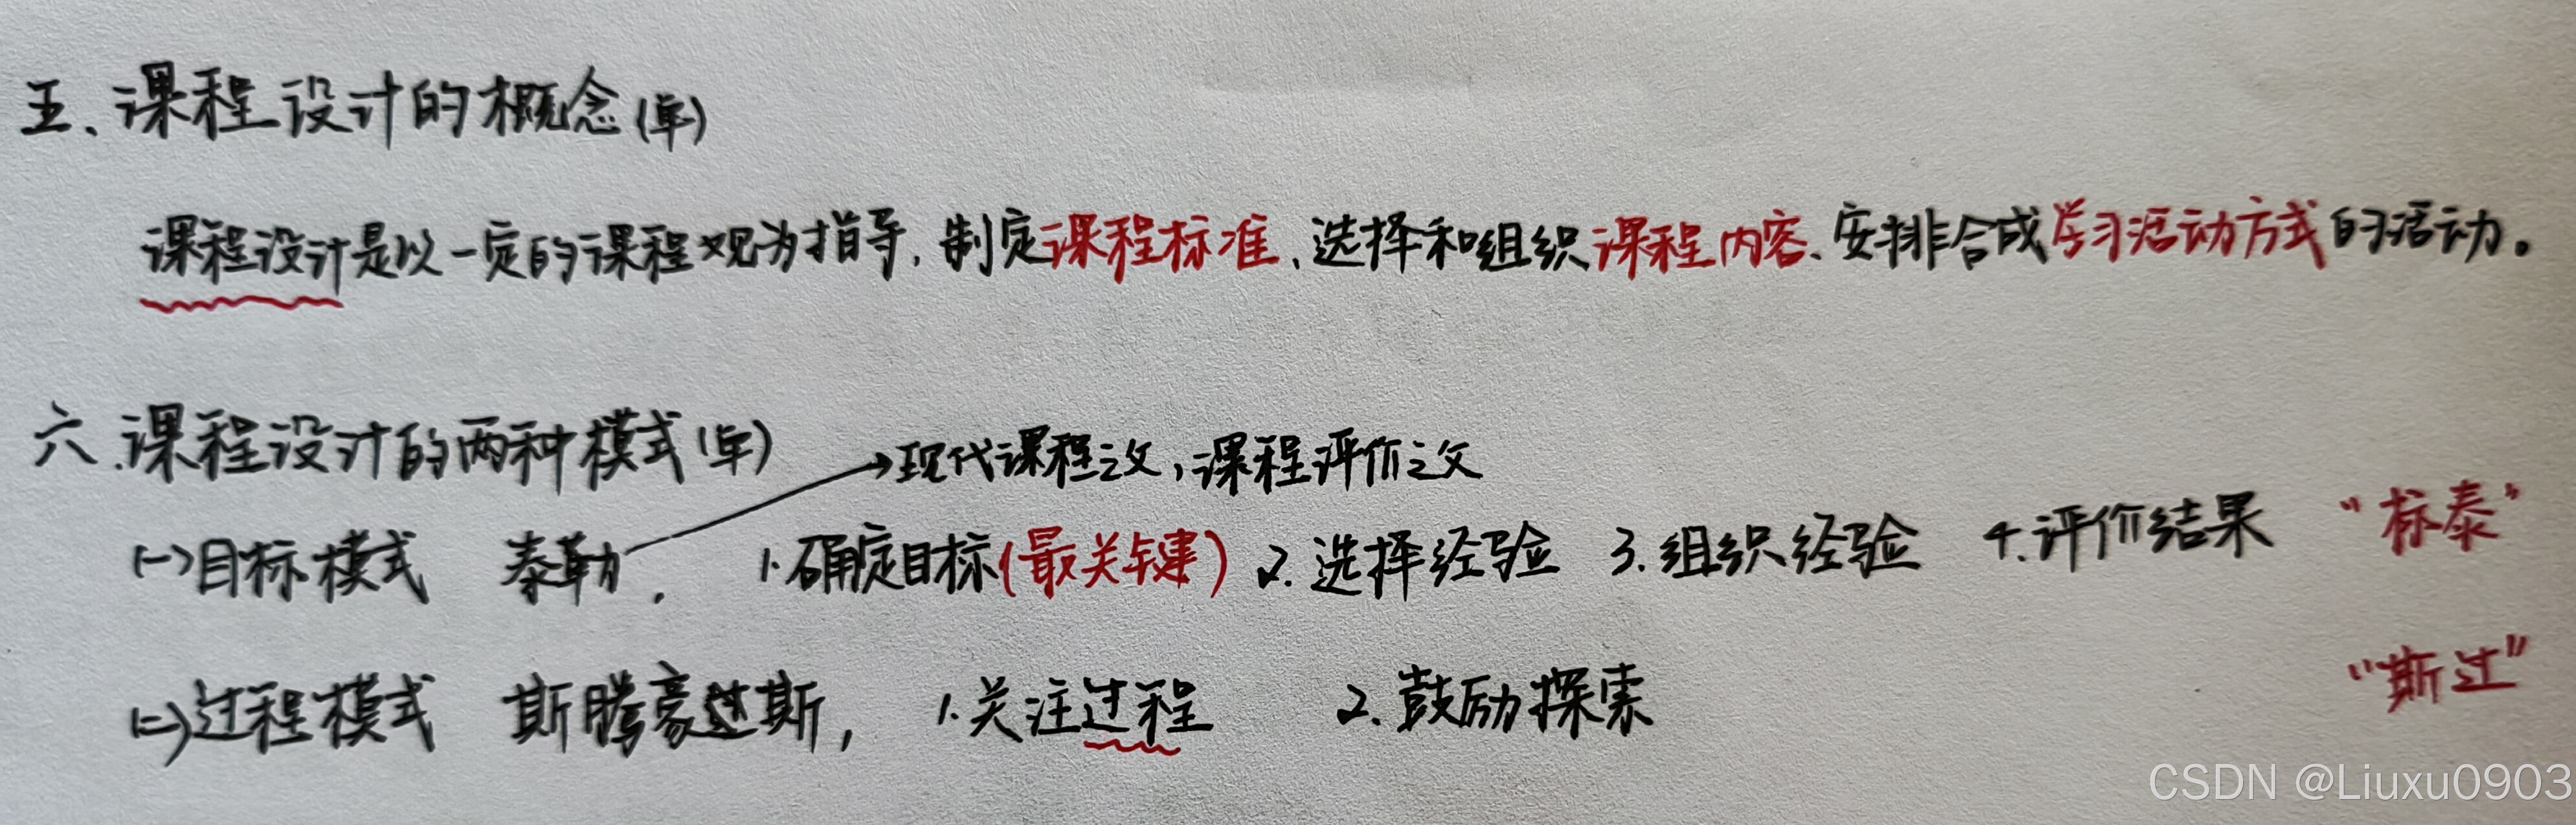 五、课程设计的概念(单)
课程设计是以一定的课程观为指导,制定课程标准、选择和组织课程内容、安排合成学习活动方式的活动。
六、课程设计的两种模式(单)
→现代课程之父,课程评价之父
(一)目标模式 泰勒, 1.确定目标(最关键) 2.选择经验 3.组织经验 4.评价结果 “标泰”
(二)过程模式 斯腾豪达斯, 1.关注过程 2.鼓励探索 “斯过”
CSDN @Liuxu0903